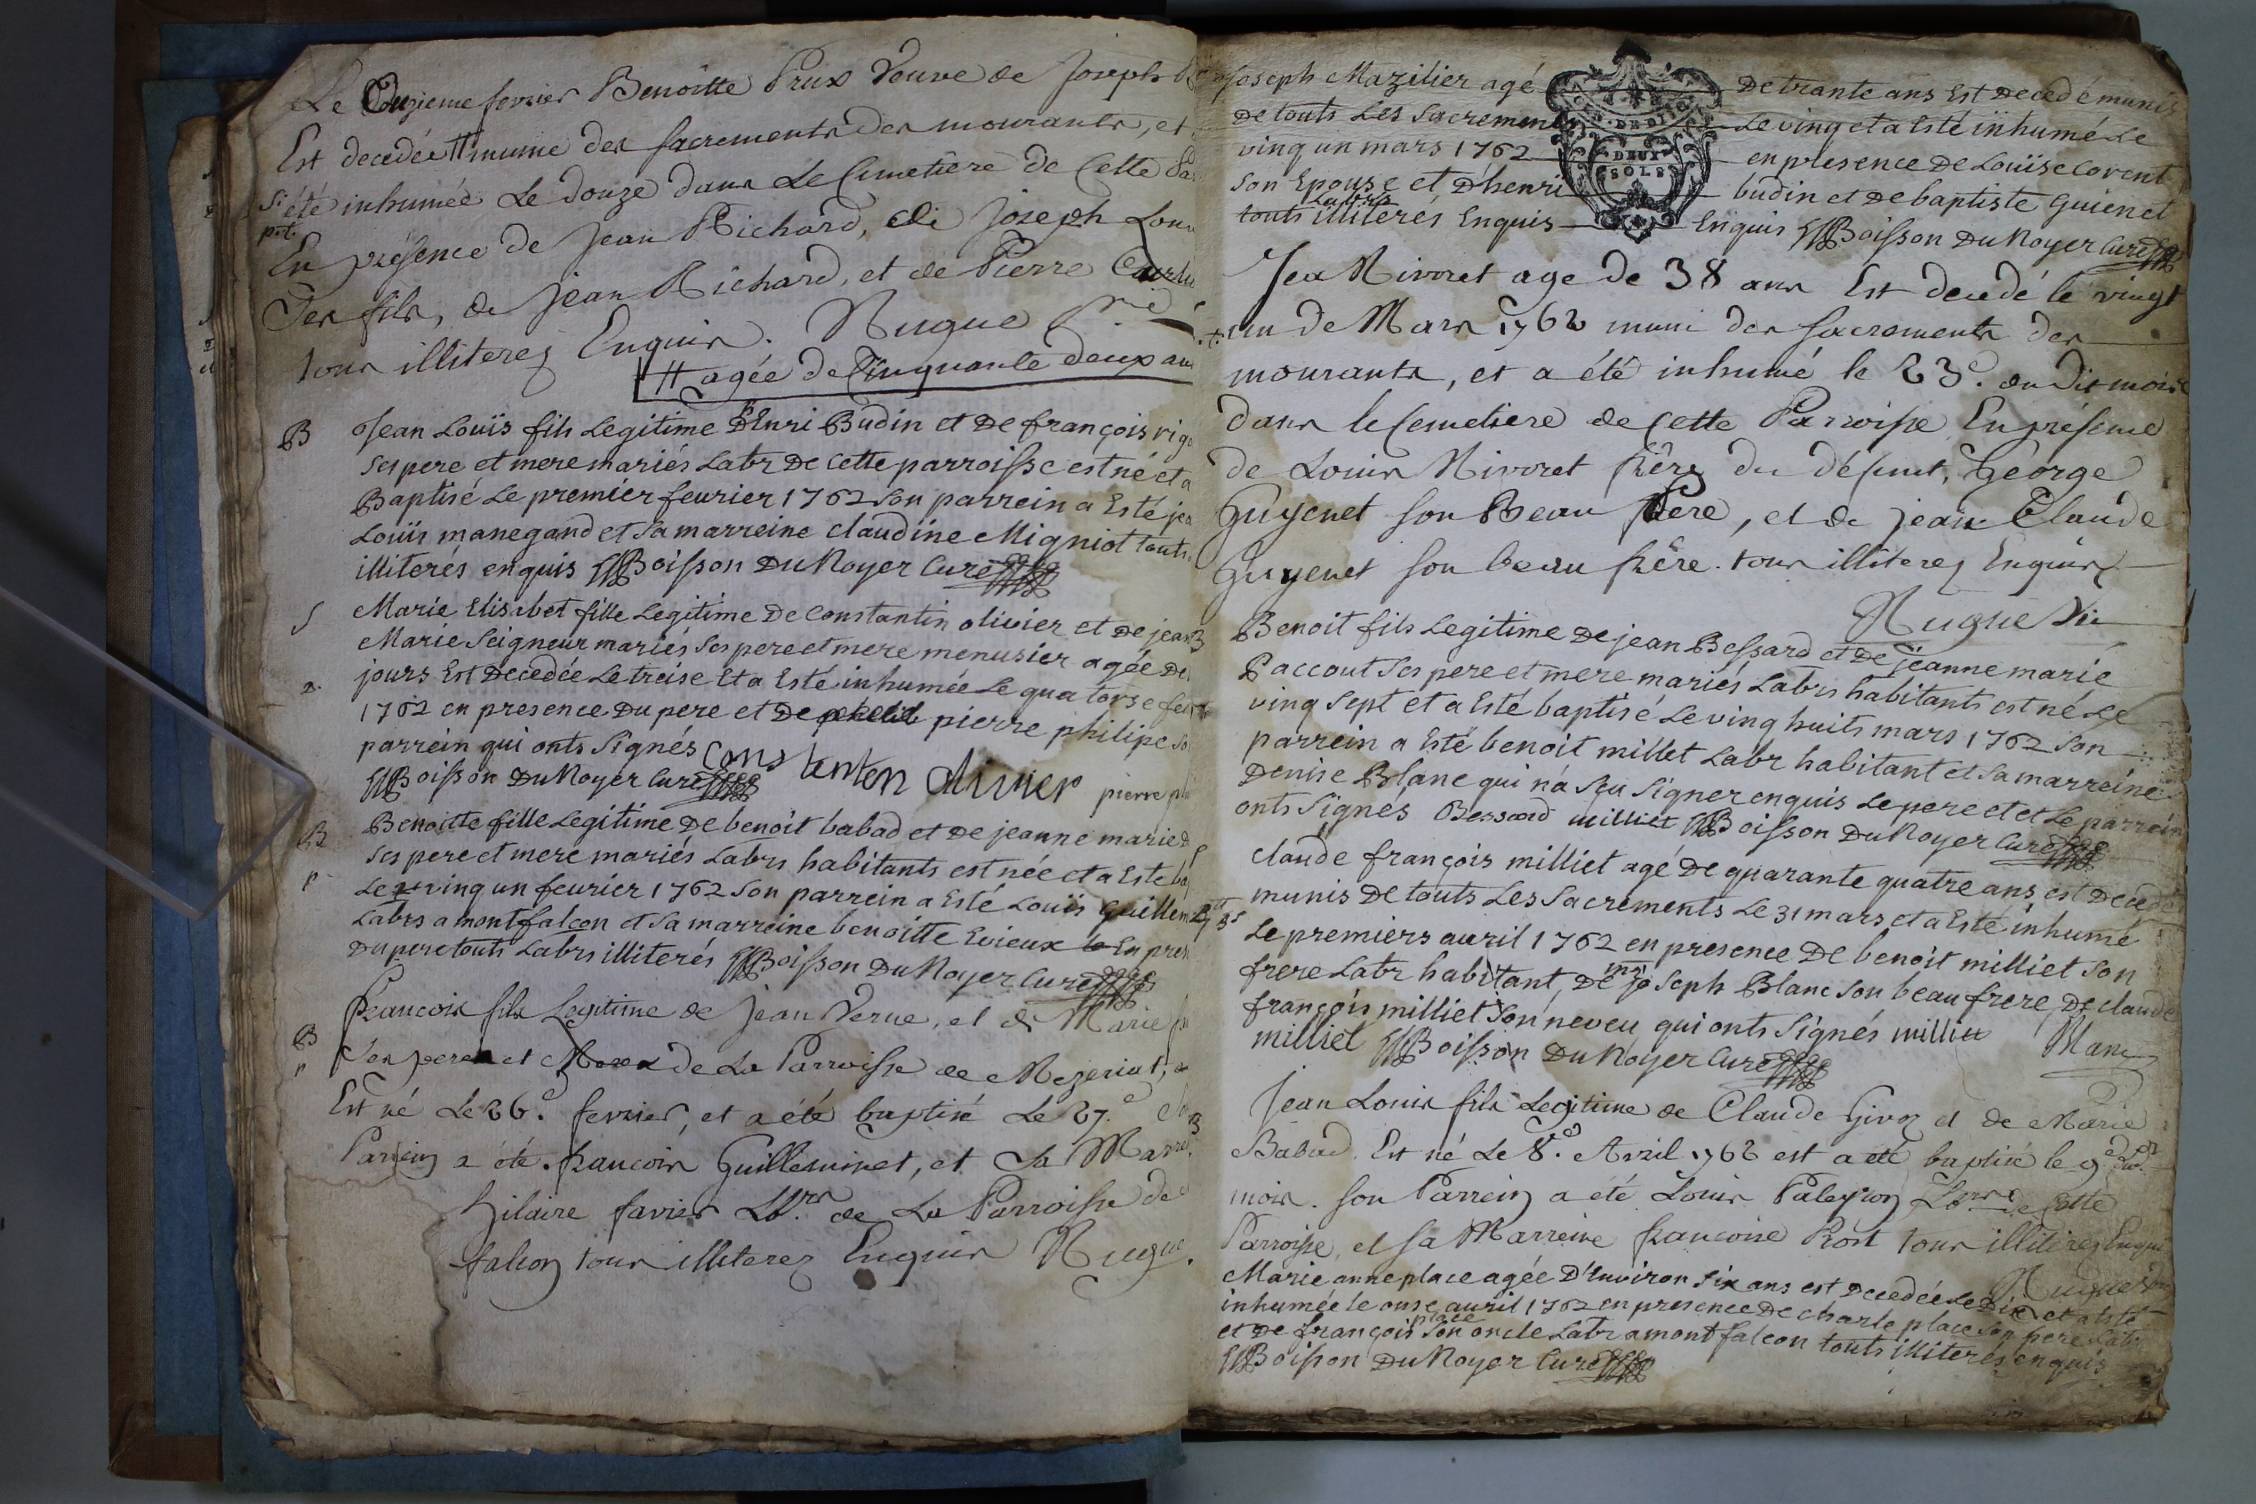 Le Onzieme fevrier Benoitte Prux Veuve de Joseph
Est decedée # munie des sacrements des mourants, et
été inhumée Le douze dans Le Cimetière de Cette
En présence de Jean Richard, de Joseph
Ses fils, de Jean Richard, et de Pierre
tous illiterez Enquis. Nugue
# agée de Cinquante deux ans
B
Jean Louïs fils Legitime D'Enri Budin et De françois
Ses pere et mere mariés Labr De cette parroisse est né et a
Baptisé Le premiér feurier 1762 Son parrein a Esté
Louïs manegand et sa marreine claudine Migniot touts
illiterés enquis Boisson Du Noyer Curé
S
Marie Elisabet fille Legitime De constantin olivier et De
Marie Seigneur mariés Ses pere et mere menusier agée De
jours Est Decedée Le treise Et a Esté inhumée Le quatorse
1762 en presence Du pere et De pierre philipe
parrein qui onts Signés constenten olivier
Boisson Du Noyer Curé pierre
B
Benoitte fille Legitime De benoit babad et de jeanne marie
Ses pere et mere mariés Labrs habitants est née et a Esté
Le vinq un feurier 1762 Son parrein a Esté Louis
Labrs a montfalcon et sa marreine benoitte Evieux En
Du pere touts Labrs illiterés Boisson Du Noyer Curé
B
francois fils Legitime de Jean Verne, et de Marie
Ses peres et Meres de La Parroisse de Mezeriat,
Est né Le 26e. fevrier, et a été baptisé Le 27.e
Parrein a été francois Guilleminet, et Sa
hilaire favier Lbrs de La Parroisse de
falcon tous illiterez Enquis Nugue
Joseph Mazilier agé De trante ans Est Decedé munis
De touts Les Sacrements Le vinq et a Esté inhumé Le
vinq un mars 1762 en presence De Louïse Corent
Son Epouse et D'henri budin et De baptiste Guienet
touts Labrs illiterés Enquis Enquis Boisson Du Noyer Curé
GEN. DE DIJON
DEUX
SOLS
Jea Nivoret age de 38 ans Est decedé le vingt
un de Mars 1762 muni des sacrements des
mourants, et a été inhumé le 23e. du Dit mois
dans le Cemetiere de Cette Parroisse En présence
de Louis Nivoret frère du défunt, George
Guyenet son Beau Père, et de Jean Claude
Guyenet son beau frère. tous illiterez Enquis
Nugue Vic
Benoit fils Legitime De jean Bessard et De jeanne marie
Paccout Ses pere et mere mariés Labrs habitants est né Le
vinq Sept et a Esté baptisé Le vinq huits mars 1762 Son
parrein a Esté benoit millet Labr habitant et sa marreine
Denise Blanc qui n'a Sçu Signer enquis Le pere et et Le parrein
onts Signés Bessard milliet Boisson Du Noyer Curé
claude françois milliet agé De quarante quatre ans est Decedé
munis De touts Les Sacrements Le 31 mars et a Esté inhumé
Le premiers auril 1762 en presence De benoit milliet Son
frere Labr habitant, De joseph Blanc son beau frere, De claude
françois milliet son neveu qui onts Signés milliet Blanc
milliet Boisson Du Noyer Curé
Jean Louis fils Legitime de Claude Givoz et de Marie
Babad. Est né Le 8e. Avril 1762 est a été baptisé le 9e du
mois. son Parrein a été Louis Paleyron de Cette
Parroisse, et sa Marreine francoise Rost tous illiterez
Nugue
Marie anne place agée D'Environ Six ans est Decedée Le Dix et a Esté
inhumée le onse auril 1762 en presence De charle place son pere Labr
et De françois place Son oncle Labr a montfalcon touts illiterés enquis
Boisson Du Noyer Curé